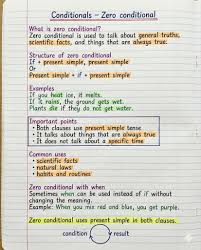 Conditionals – Zero conditional
What is zero conditional?
Zero conditional is used to talk about general truths,
scientific facts, and things that are always true.
Structure of zero conditional
If + present simple, present simple
Or
Present simple + if + present simple
Examples
If you heat ice, it melts.
If it rains, the ground gets wet.
Plants die if they do not get water.
Important points
• Both clauses use present simple tense
• It talks about things that are always true
• It does not talk about a specific time
Common uses
• scientific facts
• natural laws
• habits and routines
Zero conditional with when
Sometimes when can be used instead of if without
changing the meaning.
Example: When you mix red and blue, you get purple.
Zero conditional uses present simple in both clauses.
condition result